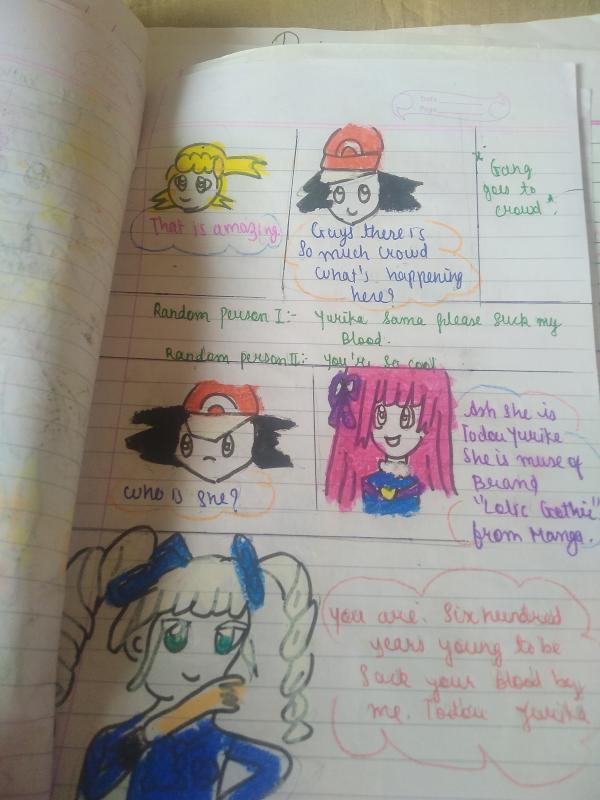 Date
Page
That is amazing
Guys there is
So much crowd
What's happening
here?
* Gang
goes to
crowd *
Random person I :- Yurika Sama please suck my
Blood.
Random person II :- You're so cool
Who is she?
Ash she is
Todou Yurika
She is muse of
Brand
"Lolic Gothic"
from Manga.
You are. Six hundred
years young to be
Suck your blood by
me. Todou Yurika